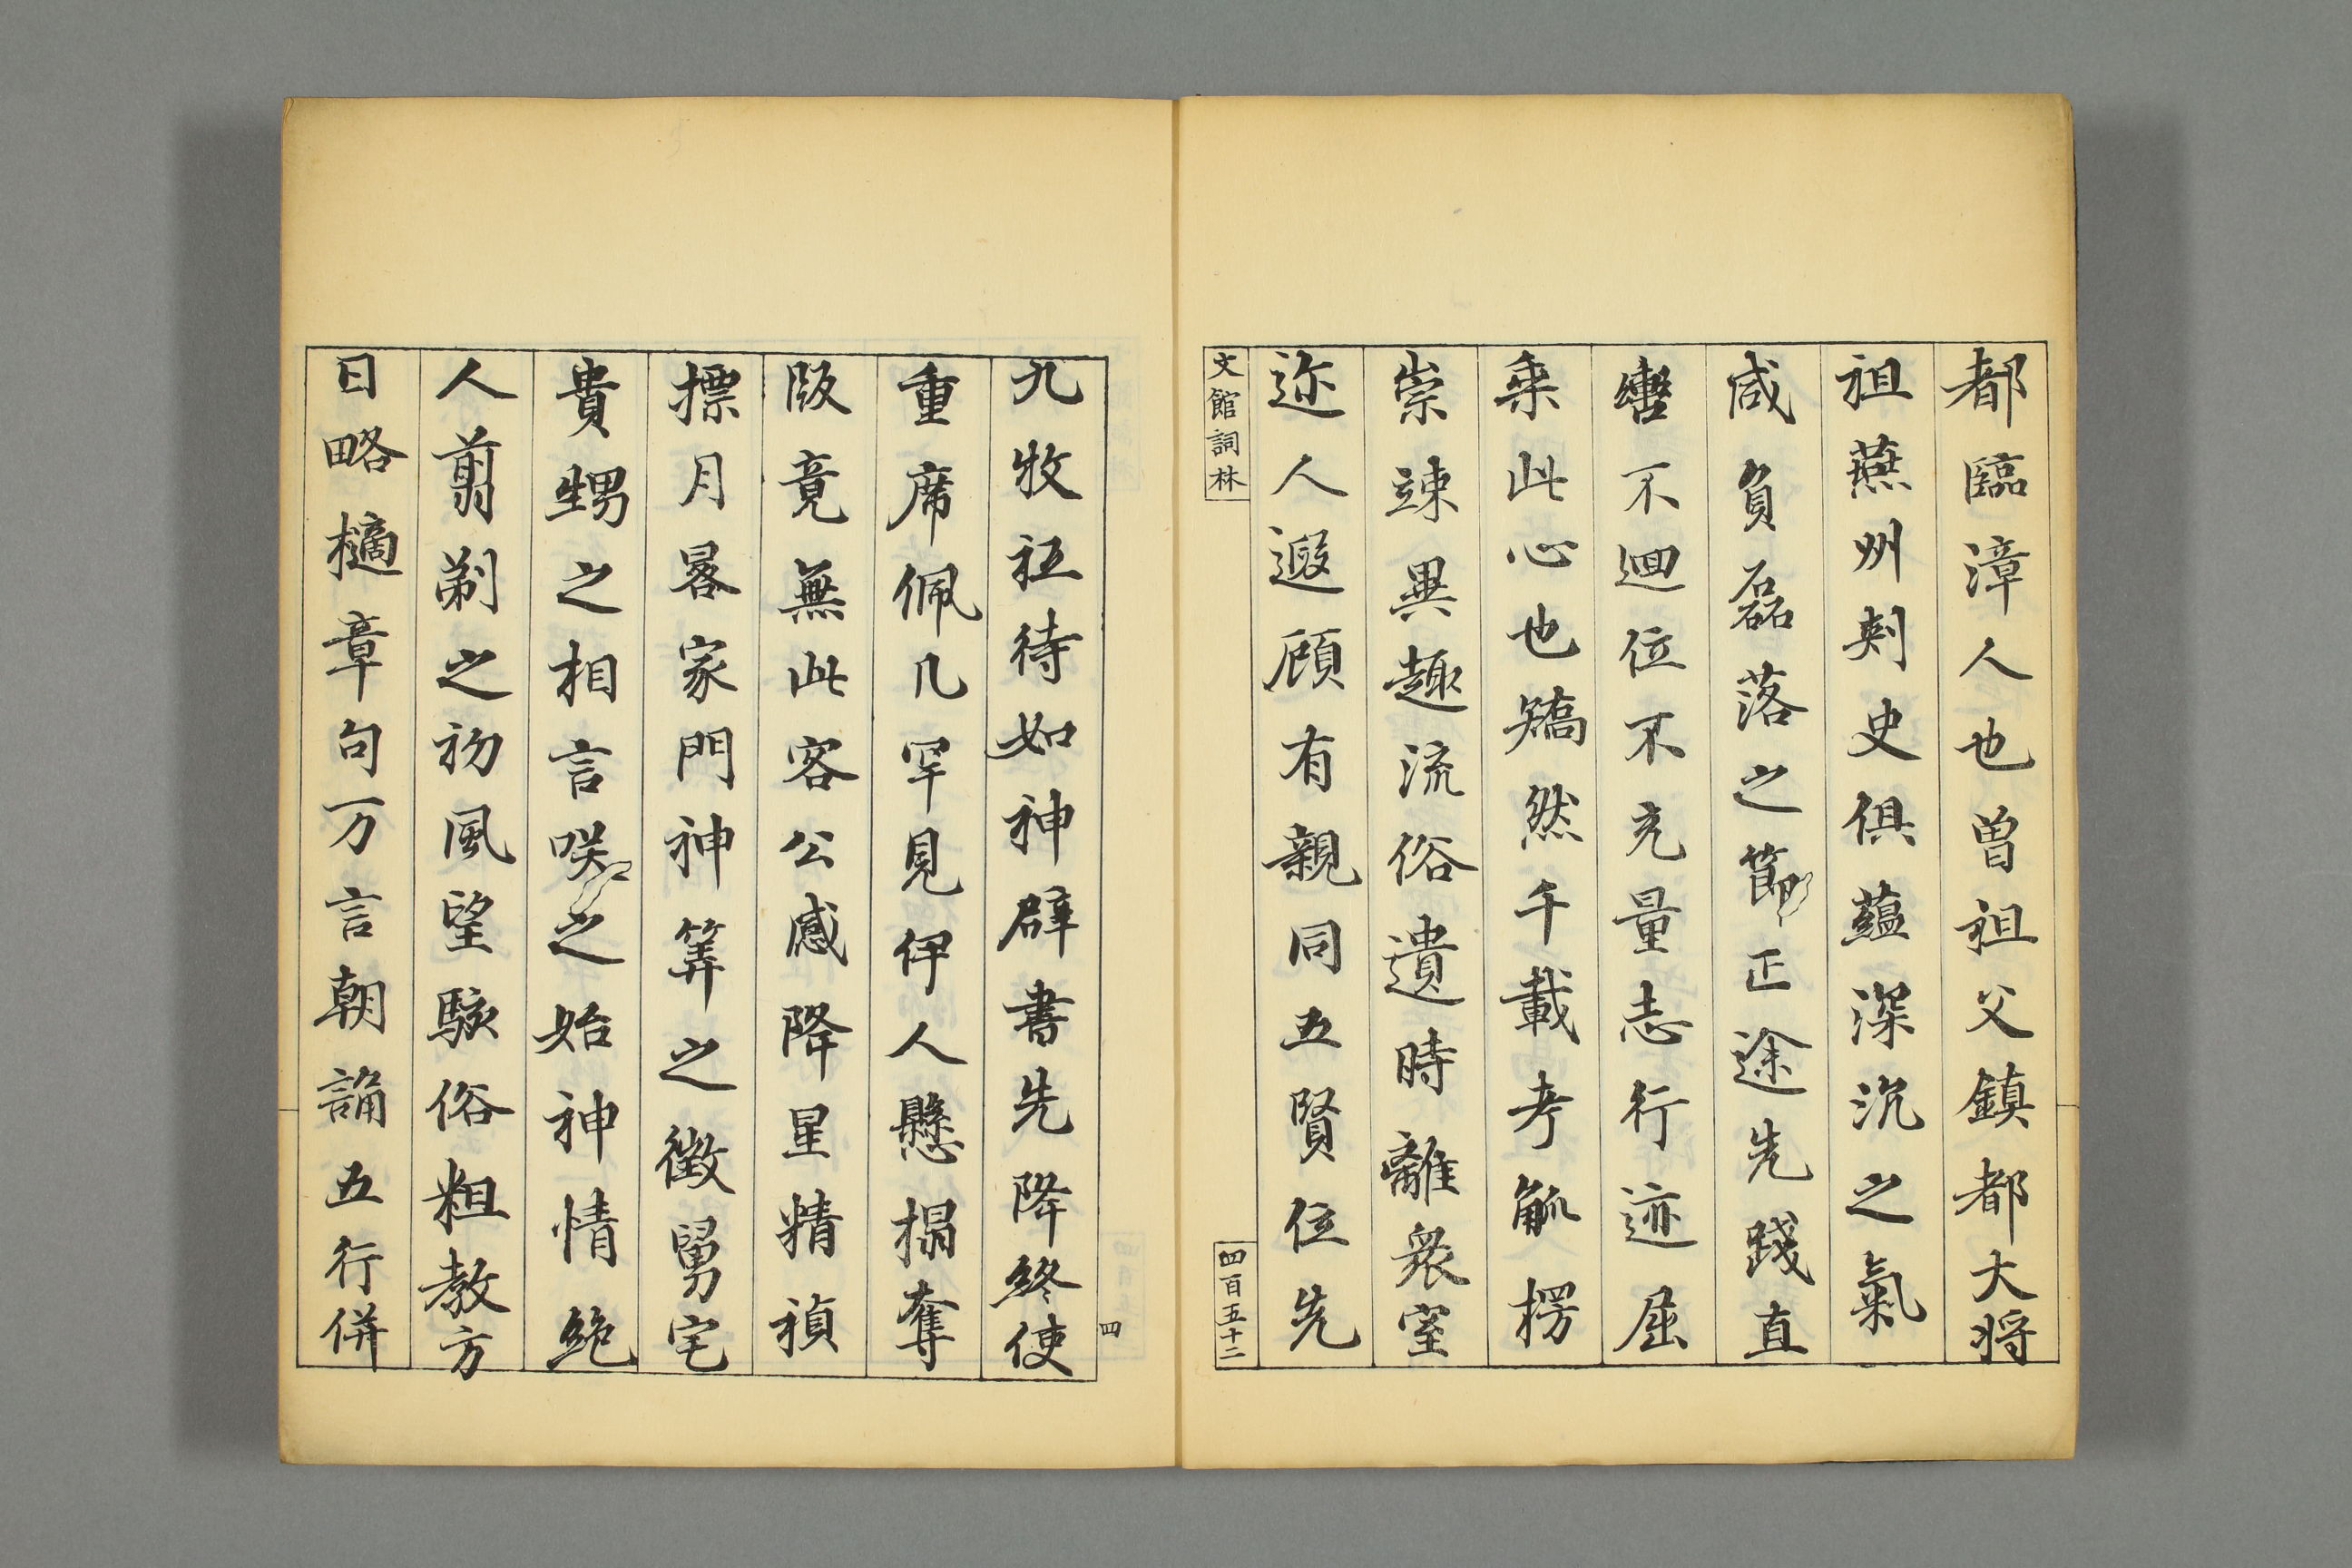 都臨漳人也曾祖父鎮都大将
祖燕州刾史俱蘊深沉之氣
咸負磊落之節正途先踐直
轡不迴位不充量志行迹屈
乘此心也矯然千載考觚楞
崇竦異趣流俗遺時離衆室
迩人遐顧有親同五賢位先
文館詞林
四百五十二
九牧祗待如神辟書先降終使
重席佩几罕見伊人懸榻奪
版竟無此客公感降星精禎
摽月晷家門神筭之徵舅宅
貴甥之相言咲之始神情絶
人翦剃之初風望駭俗粗教方
日略擿章句万言朝誦五行併
四